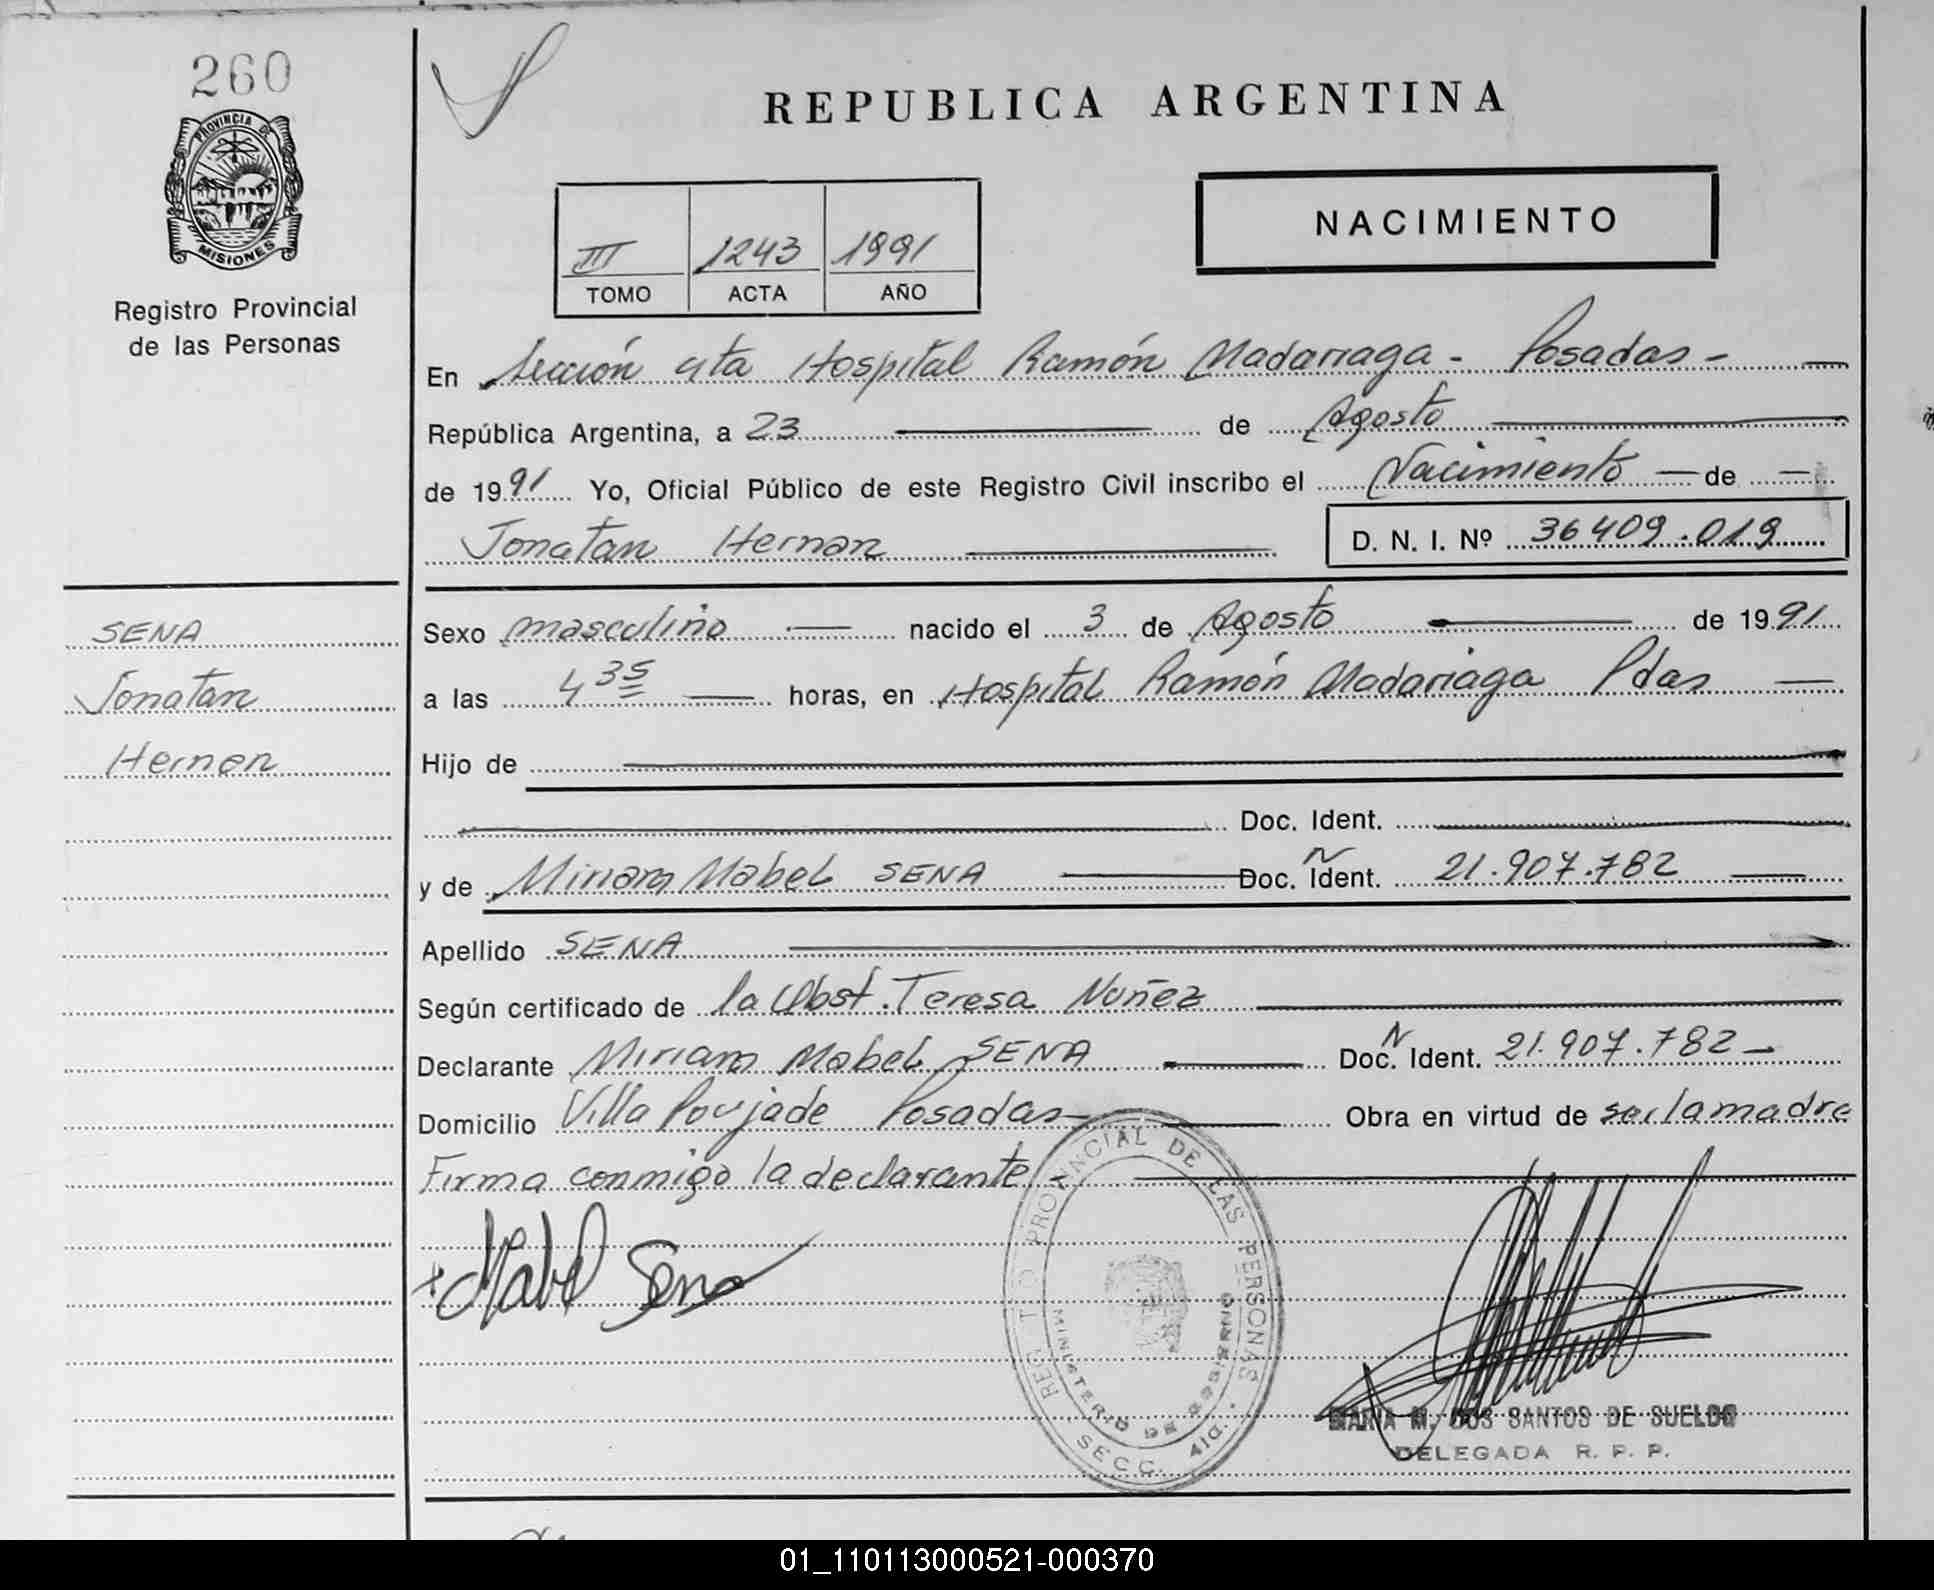 260
PROVINCIA DE
MISIONES
Registro Provincial
de las Personas
REPUBLICA ARGENTINA
III 1243 1991
TOMO ACTA AÑO
NACIMIENTO
En Sección 4ta Hospital Ramón Madariaga - Posadas -
República Argentina, a 23 de Agosto
de 1991 Yo, Oficial Público de este Registro Civil inscribo el Nacimiento de
Jonatan Hernan D. N. I. Nº 36409.019
SENA
Jonatan
Hernan
Sexo masculino nacido el 3 de Agosto de 1991
a las 4 35 horas, en Hospital Ramón Madariaga Pdas
Hijo de
Doc. Ident.
y de Miriam Mabel SENA Doc. Ident. N 21.907.782
Apellido SENA
Según certificado de la Obst. Teresa Nuñez
Declarante Miriam Mabel SENA Doc. Ident. N 21.907.782
Domicilio Villa Poujade Posadas Obra en virtud de ser la madre
Firma conmigo la declarante
Mabel Sena
PROVINCIAL DE LAS PERSONAS
MINISTERIO DE GOBIERNO
SECC. 4ta.
MARIA M. DOS SANTOS DE SUELDO
DELEGADA R. P. P.
01_110113000521-000370